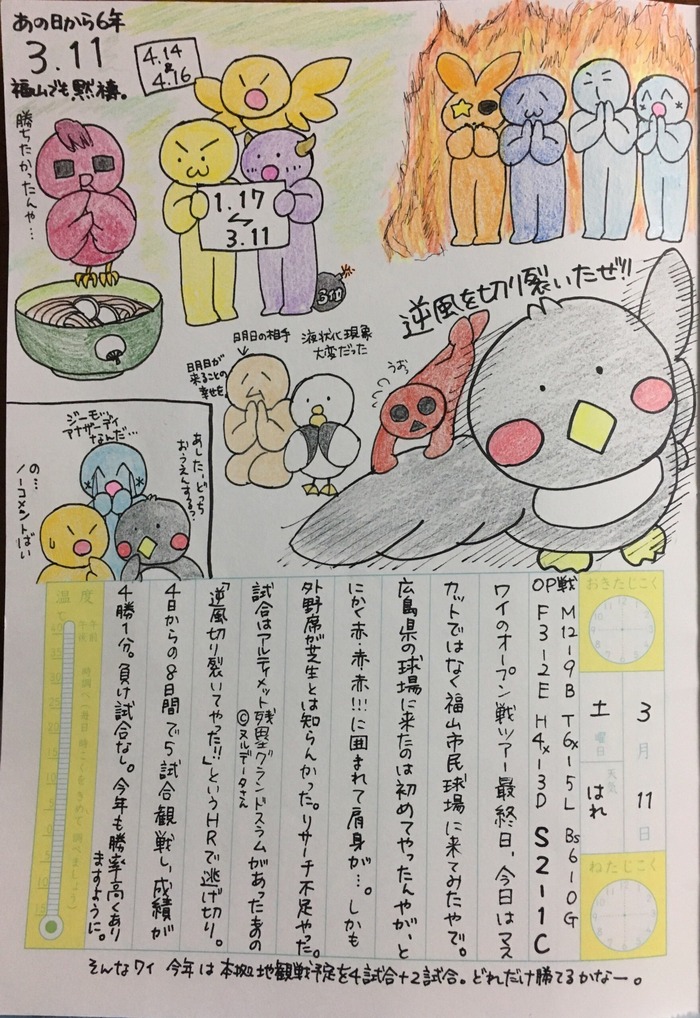 あの日から6年
3.11
福山でも黙祷。
4.14
&
4.16
勝ちたかったんや…
1.17
⇆
3.11
3.11
逆風を切り裂いたぜ!!
明日の相手
液状化現象
大変だった
明日が
来ることの
幸せを。
うお
ジーモ、
アナザーデイ
なんだ…
あした、どっち
おうえんするの?
の…
ノーコメントばい
おきたじこく
3月11日
土曜日
天気 はれ
ねたじこく
OP戦 M12-9B T6x-5L Bs6-10G
F3-2E H4x-3D S2-1C
ワイのオープン戦ツアー最終日、今日はマス
カットではなく福山市民球場に来てみたやで。
広島県の球場に来たのは初めてやったんやが、と
にかく赤・赤・赤!!!に囲まれて肩身が…。しかも
外野席が芝生とは知らんかった。リサーチ不足やった。
試合はアルティメット残塁グランドスラムがあったあの
©ヌルデータさん
「逆風切り裂いてやった!!」というHRで逃げ切り。
4日からの8日間で5試合観戦し、成績が
4勝1分。負け試合なし。今年も勝率高くあり
ますように。
温度
℃
午前
午後
40
35
30
25
20
15
10
5
0
5
10
15
時
調べ(毎日時こくをきめて調べましょう)
そんなワイ 今年は本拠地観戦予定を4試合+2試合。どれだけ勝てるかなー。